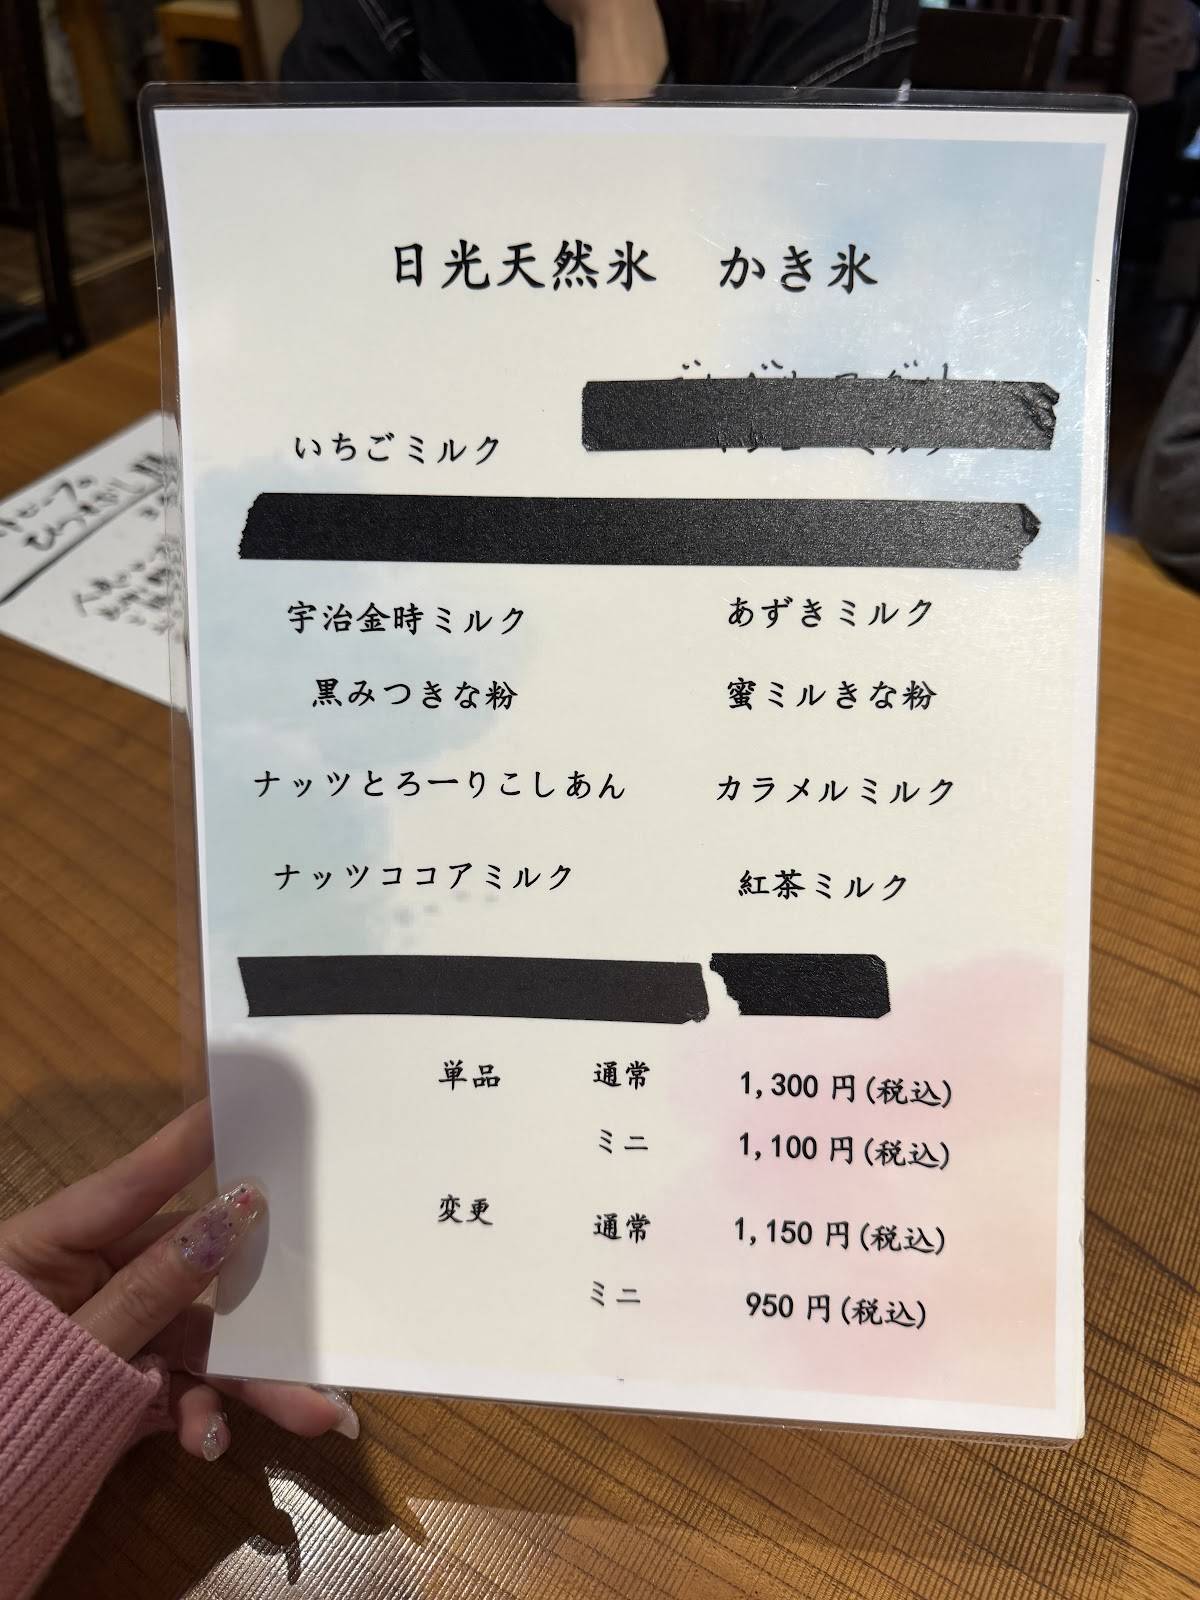 日光天然氷　かき氷
いちごミルク
宇治金時ミルク　あずきミルク
黒みつきな粉　蜜ミルきな粉
ナッツとろーりこしあん　カラメルミルク
ナッツココアミルク　紅茶ミルク
単品　通常　1,300 円(税込)
ミニ　1,100 円(税込)
変更　通常　1,150 円(税込)
ミニ　950 円(税込)